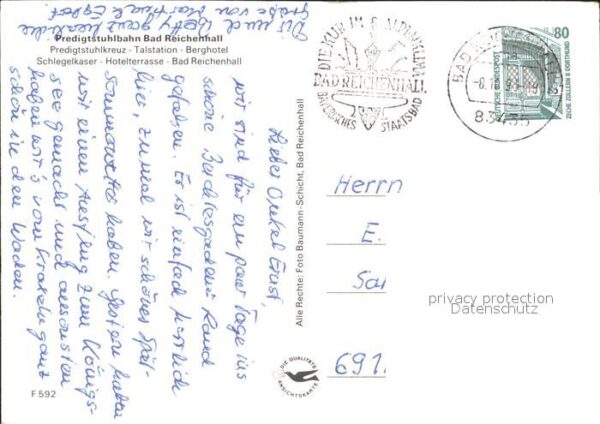 Predigtstuhlbahn Bad Reichenhall
Predigtstuhlkreuz - Talstation - Berghotel
Schlegelkaser - Hotelterrasse - Bad Reichenhall
Lieber Onkel Ernst,
wir sind für ein paar Tage ins
schöne Berchtesgadener Land
gefahren. Es ist einfach herrlich
hier, zumal wir schönes Spät-
sommerwetter haben. Gestern haben
wir einen Ausflug zum Königs-
see gemacht und ansonsten
haben wir's vom Kraxeln ganz
schön in den Waden.
Dir und Betty ganz herzliche
Grüße von
Alle Rechte: Foto Baumann-Schicht, Bad Reichenhall
DIE QUALITÄTS
ANSICHTSKARTE
F 592
DIE KUR IM ALPENKLIMA
BAD REICHENHALL
BAYERISCHES STAATSBAD
BAD REICHENHALL
83435
80
DEUTSCHE BUNDESPOST
ZECHE ZOLLERN II DORTMUND
Herrn
E.
Sar
691.
privacy protection
Datenschutz